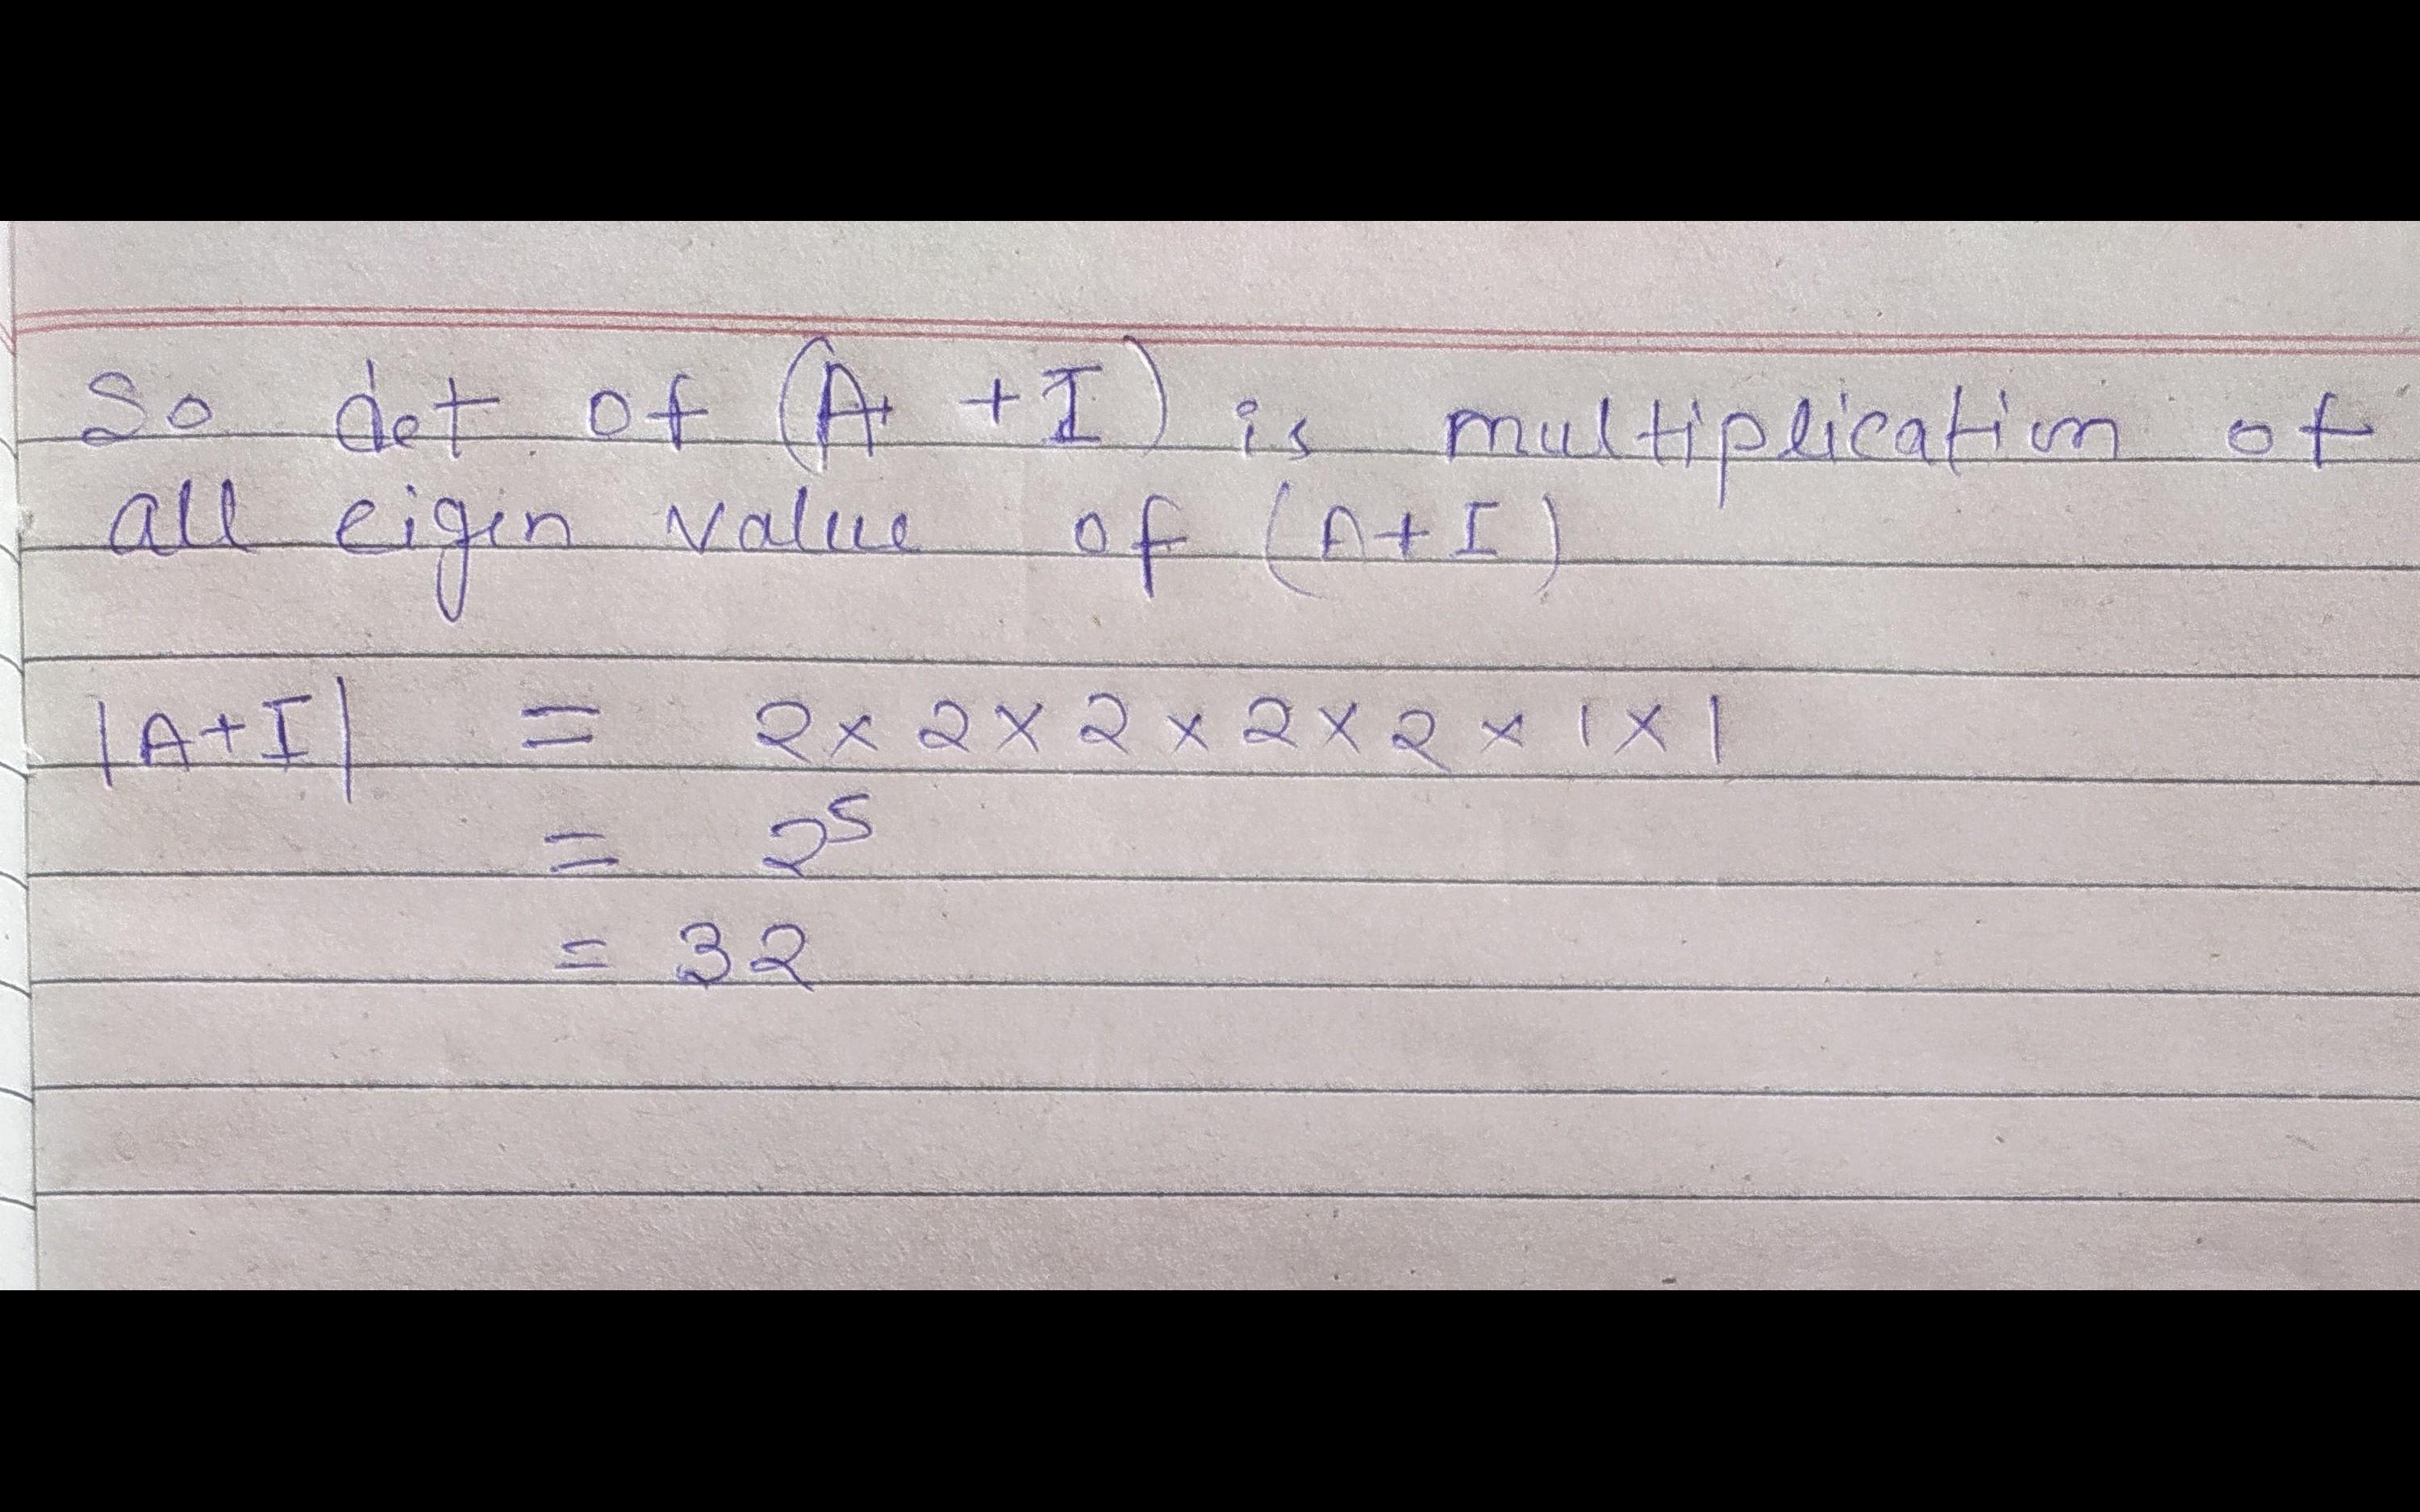 So det of (A + I) is multiplication of
all eigin value of (A+I)
|A+I| = 2 × 2 × 2 × 2 × 2 × 1 × 1
= 2⁵
= 32